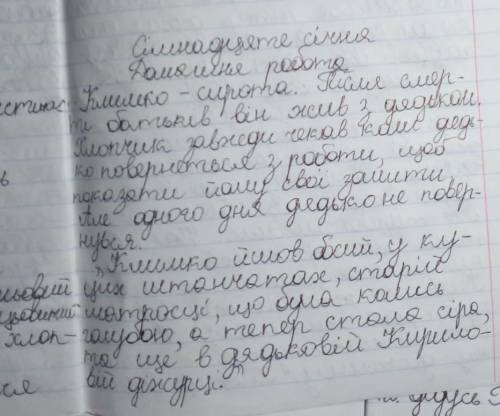 Сімнадцяте січня
Домашня робота
Климко - сирота. Після смер-
ти батьків він жив з дядьком.
Хлопчик завжди чекав коли дядь-
ко повернеться з роботи, щоб
показати йому свої замити
Але одного дня дядько не повер-
нувся.
"Климко йшов босий, у ку-
цих штанчатах, старій
матросці, що була колись
голубою, а тепер стала сіра,
та ще в дядьковій Кирило-
вій діжурці."